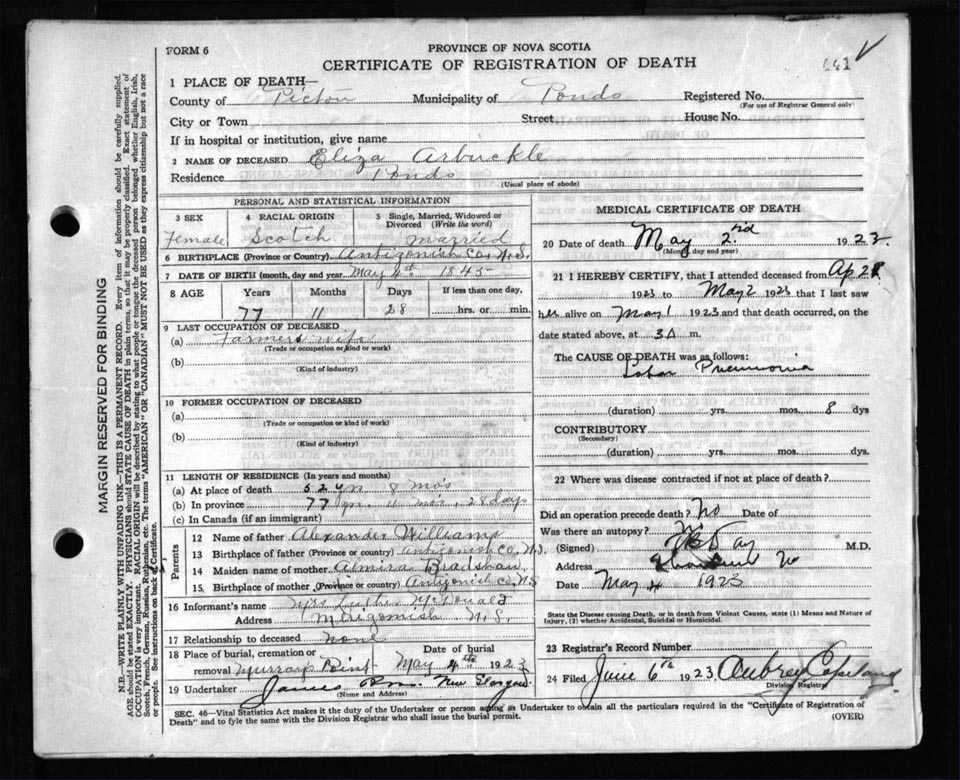 FORM 6
PROVINCE OF NOVA SCOTIA
CERTIFICATE OF REGISTRATION OF DEATH
1 PLACE OF DEATH—
County of Pictou Municipality of Ponds Registered No.
(For use of Registrar General only)
City or Town Street House No.
If in hospital or institution, give name
2 NAME OF DECEASED Eliza Arbuckle
Residence Ponds
(Usual place of abode)
PERSONAL AND STATISTICAL INFORMATION
3 SEX 4 RACIAL ORIGIN 5 Single, Married, Widowed or Divorced (Write the word)
Female Scotch married
6 BIRTHPLACE (Province or Country) Antigonish Co., N.S.
7 DATE OF BIRTH (month, day and year May 4th 1845
8 AGE Years Months Days If less than one day,
77 11 28 hrs. or min.
9 LAST OCCUPATION OF DECEASED
(a) Farmers wife
(Trade or occupation or kind or work)
(b)
(Kind of industry)
10 FORMER OCCUPATION OF DECEASED
(a)
(Trade or occupation or kind of work)
(b)
(Kind of industry)
11 LENGTH OF RESIDENCE (In years and months)
(a) At place of death 52 yrs 8 mos
(b) In province 77 yrs. 11 mos, 28 days
(c) In Canada (if an immigrant)
Parents
12 Name of father Alexander Williams
13 Birthplace of father (Province or country) Antigonish Co, N.S.
14 Maiden name of mother Almira Bradshaw
15 Birthplace of mother (Province or country) Antigonish Co, N.S
16 Informant's name Mrs Luther McDonald
Address Merigomish N.S.
17 Relationship to deceased none
18 Place of burial, cremation or Date of burial
removal Murrays Point May 4th 1923
19 Undertaker James New Glasgow
(Name and Address)
MEDICAL CERTIFICATE OF DEATH
20 Date of death May 2nd 1923
(Month, day and year)
21 I HEREBY CERTIFY, that I attended deceased from Ap 28
1923 to May 2 1923 that I last saw
her alive on May 1 1923 and that death occurred, on the
date stated above, at 3A m.
The CAUSE OF DEATH was as follows:
Lobar Pneumonia
(duration) yrs. mos. 8 dys
CONTRIBUTORY
(Secondary)
(duration) yrs. mos. dys
22 Where was disease contracted if not at place of death?
Did an operation precede death? No Date of
Was there an autopsy? No
(Signed) M.D.
Address
Date May 4 1923
State the Disease causing Death, or in death from Violent Causes, state (1) Means and Nature of
Injury, (2) whether Accidental, Suicidal or Homicidal.
23 Registrar's Record Number
24 Filed June 6th 1923 Aubrey
Division Registrar
SEC. 46—Vital Statistics Act makes it the duty of the Undertaker or person acting as Undertaker to obtain all the particulars required in the "Certificate of Registration of
Death" and to fyle the same with the Division Registrar who shall issue the burial permit.
(OVER)
MARGIN RESERVED FOR BINDING
N.B.—WRITE PLAINLY WITH UNFADING INK—THIS IS A PERMANENT RECORD. Every item of information should be carefully supplied.
AGE should be stated EXACTLY. PHYSICIANS should STATE CAUSE OF DEATH in plain terms, so that it may be properly classified. Exact statement of
OCCUPATION is very important. RACIAL ORIGIN will be described by stating to what people or tongue the deceased person belonged whether English, Irish,
Scotch, French, German, Russian, Ruthenian, etc. The terms "AMERICAN" OR "CANADIAN" MUST NOT BE USED as they express citizenship but not a race
or people. See instructions on back of Certificate.